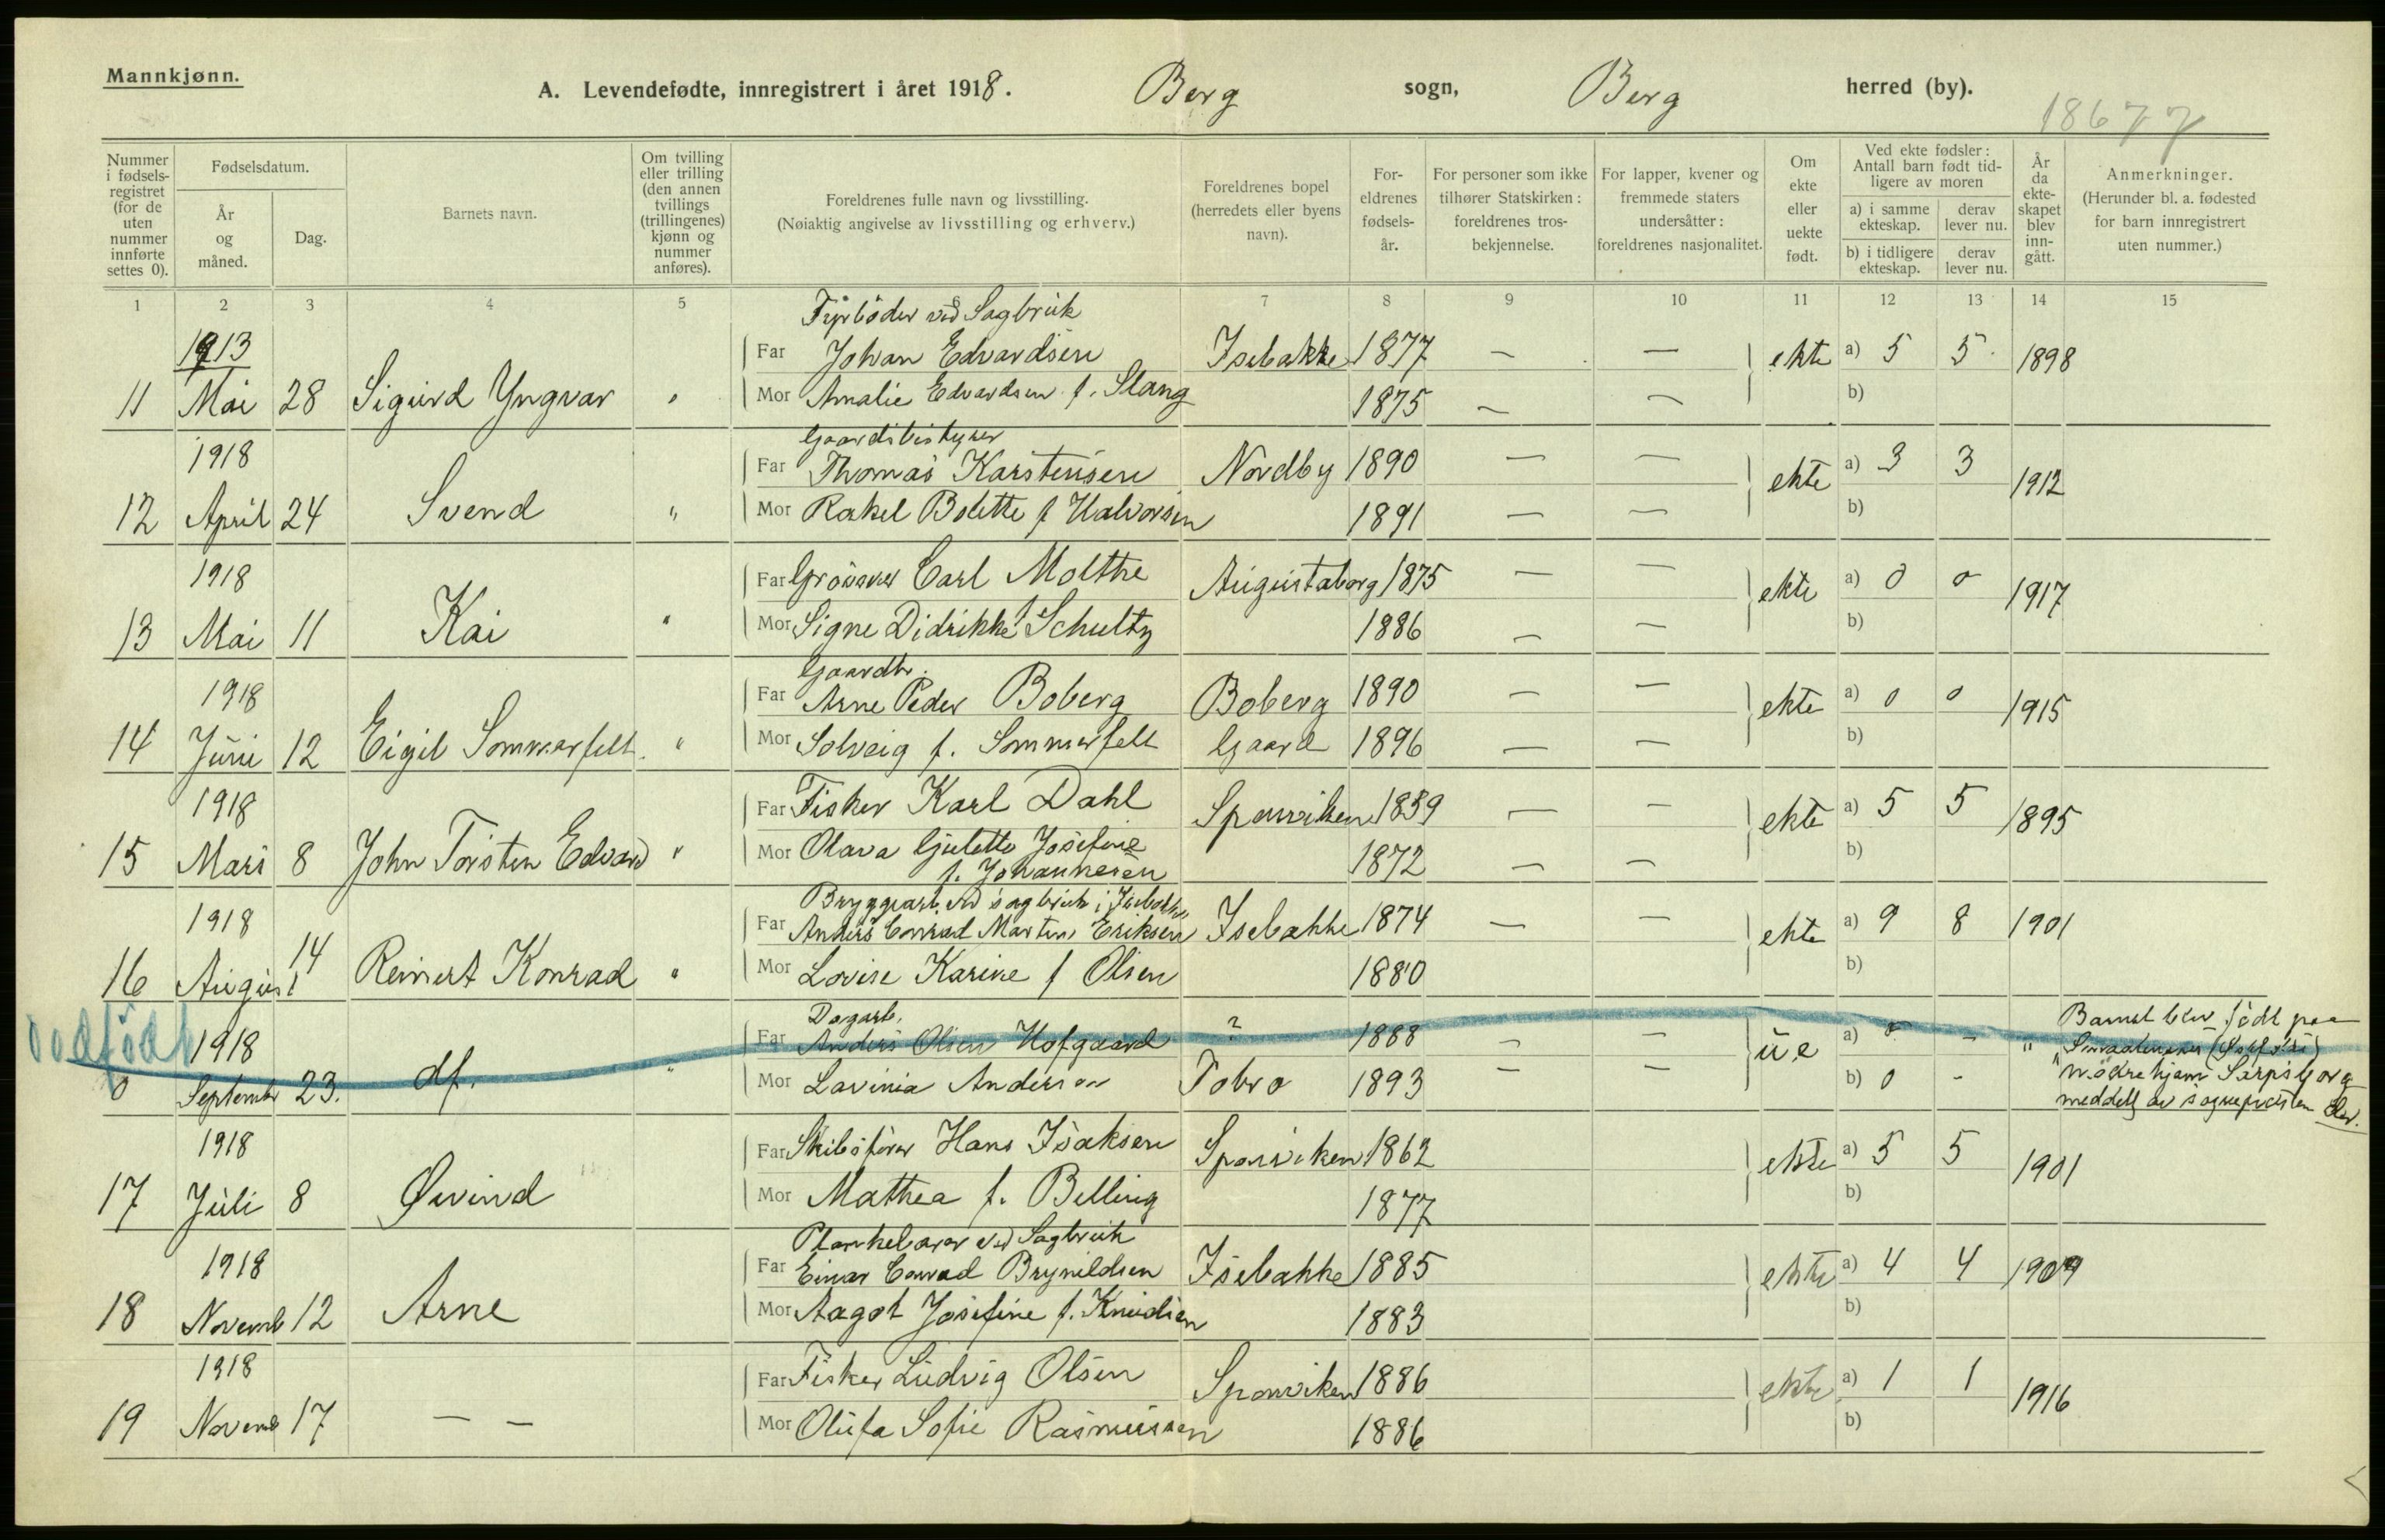 Mannkjønn.
A. Levendefødte, innregistrert i året 1918. Berg sogn, Berg herred (by).
18677
Nummer i fødselsregistret (for de uten nummer innførte settes 0).
Fødselsdatum.
År og måned.
Dag.
Barnets navn.
Om tvilling eller trilling (den annen tvillings (trillingenes) kjønn og nummer anføres).
Foreldrenes fulle navn og livsstilling.
(Nøiaktig angivelse av livsstilling og erhverv.)
Foreldrenes bopel (herredets eller byens navn).
Foreldrenes fødselsår.
For personer som ikke tilhører Statskirken: foreldrenes trosbekjennelse.
For lapper, kvener og fremmede staters undersåtter: foreldrenes nasjonalitet.
Om ekte eller uekte født.
Ved ekte fødsler: Antall barn født tidligere av moren
a) i samme ekteskap. derav lever nu.
b) i tidligere ekteskap. derav lever nu.
År da ekteskapet blev inngått.
Anmerkninger.
(Herunder bl. a. fødested for barn innregistrert uten nummer.)
1 2 3 4 5 7 8 9 10 11 12 13 14 15
Fyrbøder ved Sagbruk
1913 Far Johan Edvardsen Isebakke 1877 — — ekte a) 5 5 1898
11 Mai 28 Sigurd Yngvar " Mor Amalie Edvardsen f. Stang 1875 — — b)
Gaardsbestyrer
1918 Far Thomas Karstensen Nordby 1890 — — ekte a) 3 3 1912
12 April 24 Svend " Mor Rakel Bolette f Halvorsen 1891 — — b)
1918 Far Carl Molthe Augustaborg 1875 — — ekte a) 0 0 1917
13 Mai 11 Kai " Mor Signe Didrikke f. Schultz 1886 — — b)
Gaardbr.
1918 Far Arne Peder Boberg Boberg 1890 — — ekte a) 0 0 1915
14 Juni 12 Eigil Sommerfelt. " Mor Solveig f. Sommerfelt Gaard 1896 — — b)
1918 Far Fisker Karl Dahl Sponviken 1859 — — ekte a) 5 5 1895
15 Mars 8 John Torsten Edvard " Mor Olava Gulette Josefine
f. Johannesen 1872 — — b)
Bryggearb. ved sagbruk i Isebakke
1918 Far Anders Conrad Martin Eriksen Isebakke 1874 — — ekte a) 9 8 1901
16 August 14 Reinert Konrad " Mor Lovise Karine f Olsen 1880 b)
Dagarb.
dødfødt 1918 Far Anders Olsen Hofgaard ? 1888 — — ue a) 0 - " Barnet blev født paa
0 Septembr 23. df. " Mor Lavinia Anderson Tobro 1893 — — b) 0 - "
mødrehjem Sarpsborg
meddelt av sogneprästen
1918 Far Skibsfører Hans Isaksen Sponviken 1862 ekte a) 5 5 1901
17 Juli 8 Øivind Mor Mathea f. Billing 1877 b)
Plankebærer ved Sagbruk
1918 Far Einar Conrad Brynildsen Isebakke 1885 ekte a) 4 4 1909
18 Novemb 12 Arne Mor Aagot Josefine f. Knudsen 1883 b)
1918 Far Fisker Ludvig Olsen Sponviken 1886 ekte a) 1 1 1916
19 Novemb 17 — — Mor Olufa Sofie Rasmussen 1886 b)